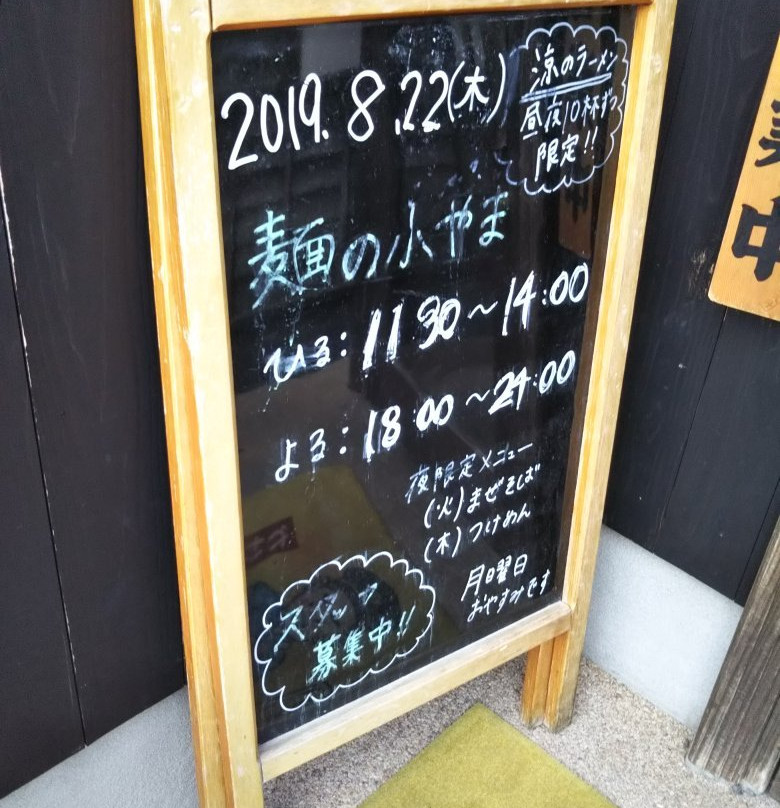 2019.8.22(木)
涼のラーメン
昼夜10杯ずつ
限定!!
麺の小やま
ひる:11 30~14:00
よる:18:00~24:00
夜限定メニュー
(火)まぜそば
(木)つけめん
月曜日
おやすみです
スタッフ
募集中!!
中